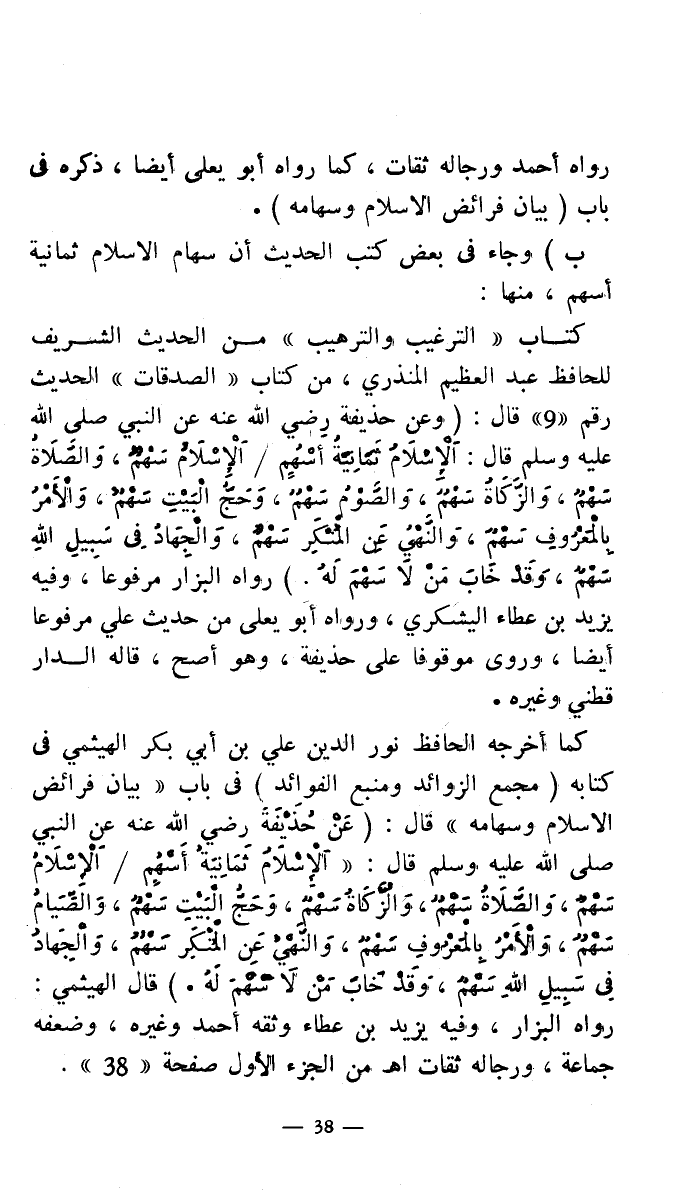 رواه أحمد ورجاله ثقات ، كما رواه أبو يعلى أيضا ، ذكره فى
باب ( بيان فرائض الاسلام وسهامه ) .
ب ) وجاء فى بعض كتب الحديث أن سهام الاسلام ثمانية
أسهم ، منها :
كتـــاب « الترغيب والترهيب » مــن الحديث الشــريف
للحافظ عبد العظيم المنذري ، من كتاب « الصدقات » الحديث
رقم «9» قال : ( وعن حذيفة رضي الله عنه عن النبي صلى الله
عليه وسلم قال : اَلْإِسْلَامُ ثَمَانِيَةُ أَسْهُمٍ / اَلْإِسْلَامُ سَهْمٌ ، وَالصَّلَاةُ
سَهْمٌ ، وَالزَّكَاةُ سَهْمٌ ، وَالصَّوْمُ سَهْمٌ ، وَحَجُّ الْبَيْتِ سَهْمٌ ، وَالْأَمْرُ
بِالْمَعْرُوفِ سَهْمٌ ، وَالنَّهْيُ عَنِ الْمُنْكَرِ سَهْمٌ ، وَالْجِهَادُ فِى سَبِيلِ اللهِ
سَهْمٌ ، وَقَدْ خَابَ مَنْ لَا سَهْمَ لَهُ . ) رواه البزار مرفوعا ، وفيه
يزيد بن عطاء اليشكري ، ورواه أبو يعلى من حديث علي مرفوعا
أيضا ، وروى موقوفا على حذيفة ، وهو أصح ، قاله الــدار
قطني وغيره .
كما أخرجه الحافظ نور الدين علي بن أبي بكر الهيثمي فى
كتابه ( مجمع الزوائد ومنبع الفوائد ) فى باب « بيان فرائض
الاسلام وسهامه » قال : ( عَنْ حُذَيْفَةَ رضي الله عنه عن النبي
صلى الله عليه وسلم قال : « اَلْإِسْلَامُ ثَمَانِيَةُ أَسْهُمٍ / اَلْإِسْلَامُ
سَهْمٌ ، وَالصَّلَاةُ سَهْمٌ ، وَالزَّكَاةُ سَهْمٌ ، وَحَجُّ الْبَيْتِ سَهْمٌ ، وَالصِّيَامُ
سَهْمٌ ، وَالْأَمْرُ بِالْمَعْرُوفِ سَهْمٌ ، وَالنَّهْيُ عَنِ الْمُنْكَرِ سَهْمٌ ، وَالْجِهَادُ
فِى سَبِيلِ اللهِ سَهْمٌ ، وَقَدْ خَابَ مَنْ لَا سَهْمَ لَهُ . ) قال الهيثمي :
رواه البزار ، وفيه يزيد بن عطاء وثقه أحمد وغيره ، وضعفه
جماعة ، ورجاله ثقات اهـ من الجزء الأول صفحة « 38 » .
— 38 —